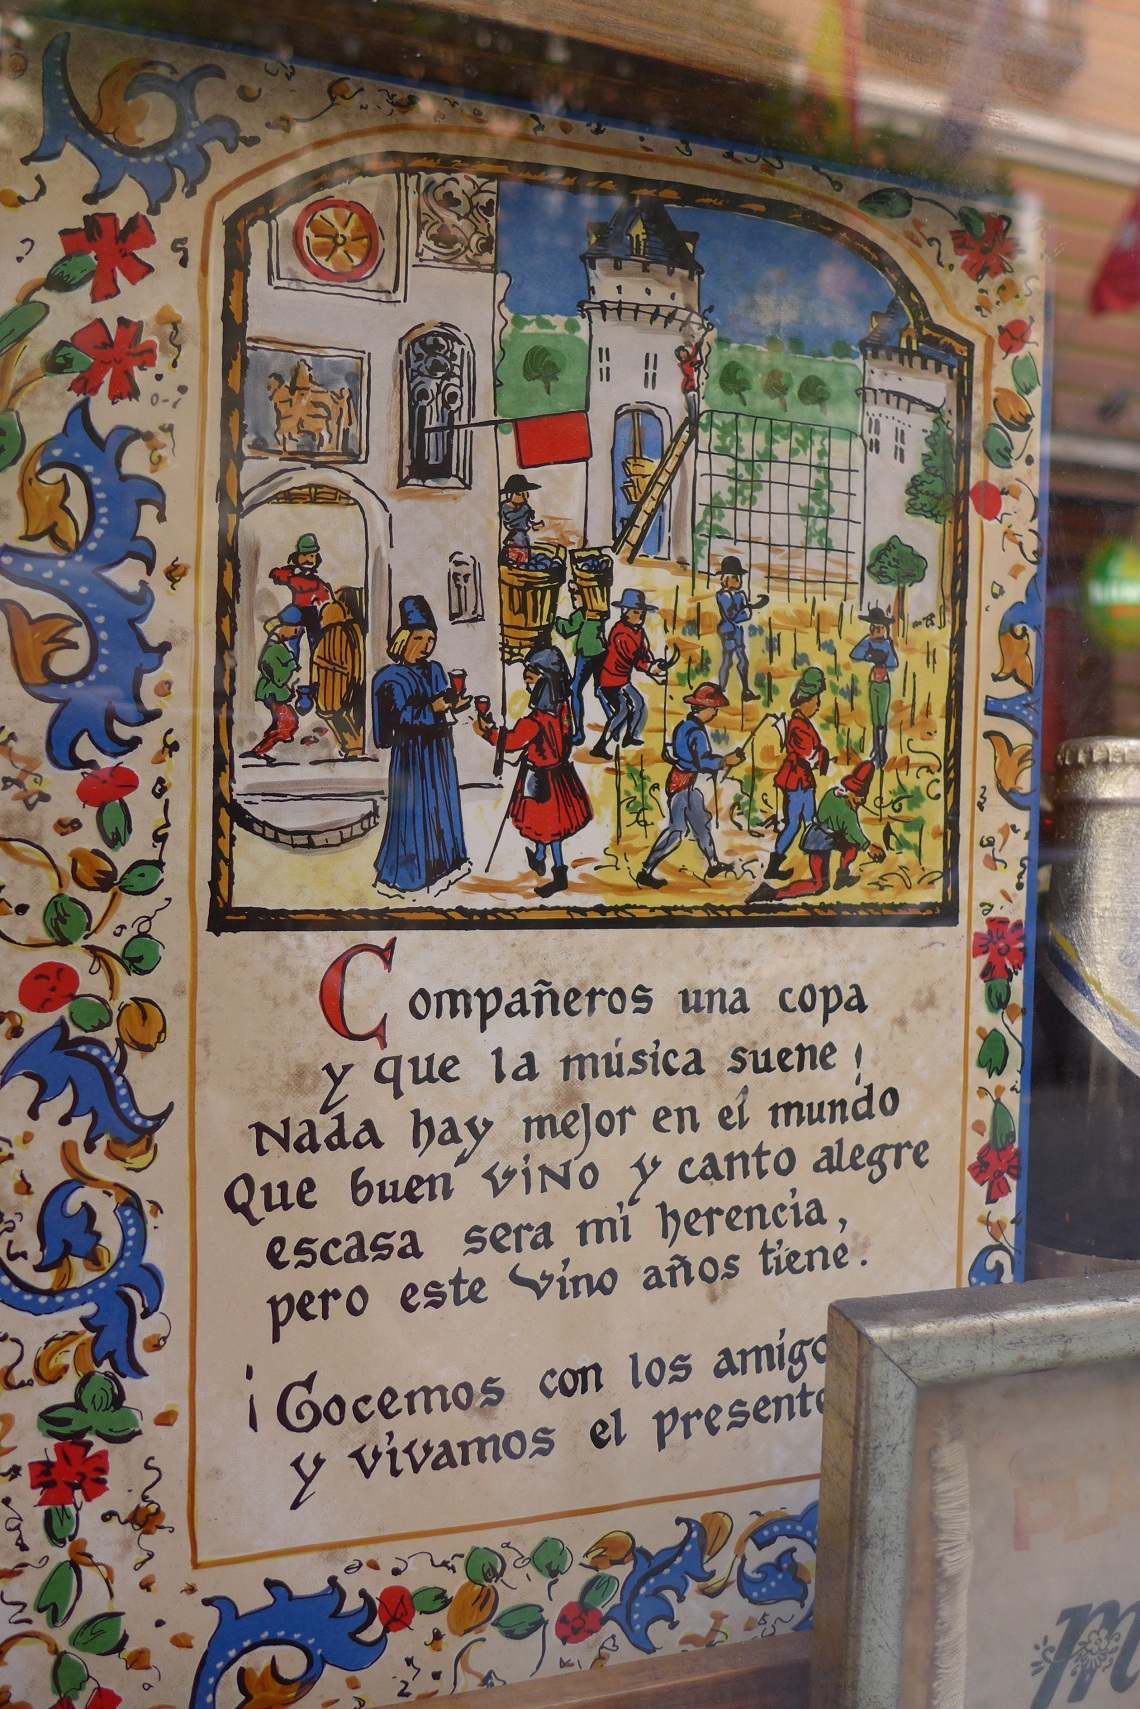 Compañeros una copa
y que la música suene!
Nada hay mejor en el mundo
Que buen vino y canto alegre
escasa sera mi herencia,
pero este vino años tiene.
¡Gocemos con los
y vivamos el